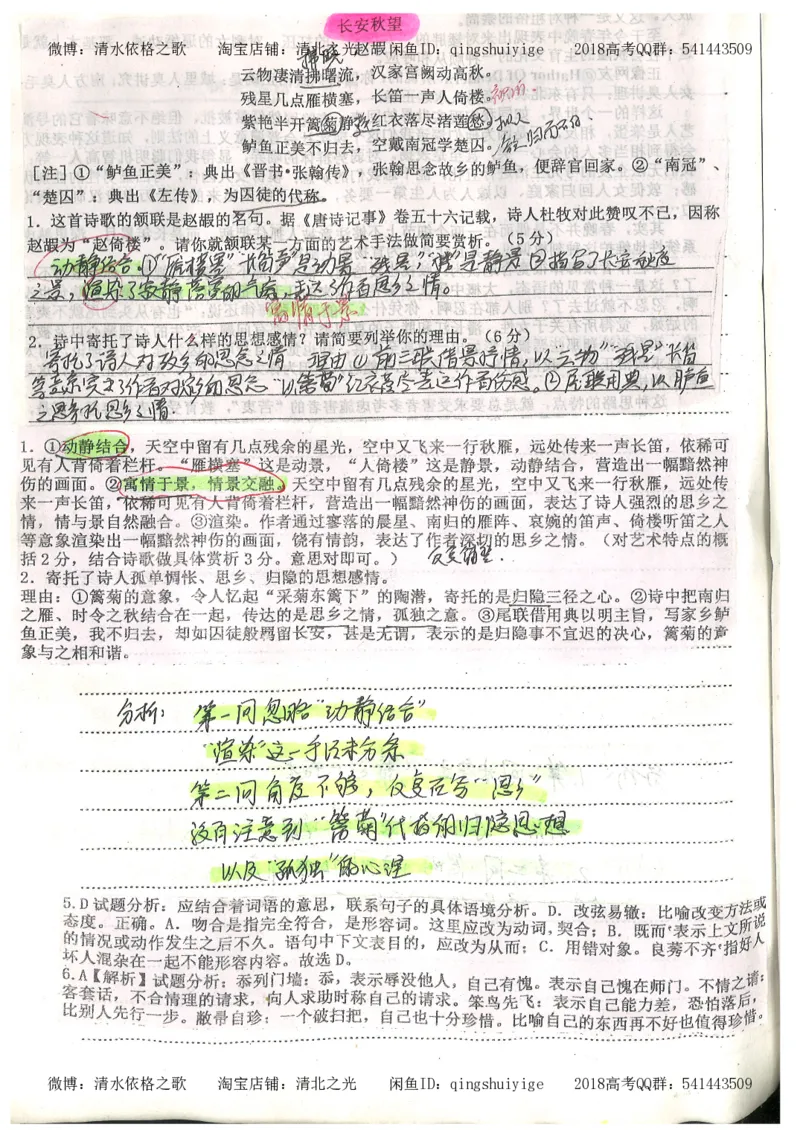 长安秋望
微博：清水依格之歌 淘宝店铺：清北之光赵嘏闲鱼ID：qingshuiyige 2018高考QQ群：541443509
云物凄清拂曙流，汉家宫阙动高秋。
残星几点雁横塞，长笛一声人倚楼。
紫艳半开篱菊静，红衣落尽渚莲愁。
鲈鱼正美不归去，空戴南冠学楚囚。
[注]①“鲈鱼正美”：典出《晋书·张翰传》，张翰思念故乡的鲈鱼，便辞官回家。②“南冠”、
“楚囚”：典出《左传》，为囚徒的代称。
1．这首诗歌的颔联是赵嘏的茗句。据《唐诗记事》卷五十六记载，诗人杜牧对此赞叹不已，因称
赵嘏为“赵倚楼”。请你就颔联某一方面的艺术手法做简要赏析。（5分）
动静结合。①“雁横塞”“长笛声”是动景
之景，渲染了寂静
寓情于景
2．诗中寄托了诗人什么样的思想感情？请简要列举你的理由。（6分）
寄托了诗人对故乡的思念之情 理由①前三联借景抒情，以“云物”“残星”长笛
②尾联用典，以鲈鱼
之思寄托思乡之情.
1．①动静结合，天空中留有几点残余的星光，空中又飞来一行秋雁，远处传来一声长笛，依稀可
见有人背倚着栏杆。“雁横塞”这是动景，“人倚楼”这是静景，动静结合，营造出一幅黯然神
伤的画面。②寓情于景，情景交融。天空中留有几点残余的星光，空中又飞来一行秋雁，远处传
来一声长笛，依稀可见有人背倚着栏杆，营造出一幅黯然神伤的画面，表达了诗人强烈的思乡之
情，情与景自然融合。③渲染。作者通过寥落的晨星、南归的雁阵、哀婉的笛声、倚楼听笛之人
等意象渲染出一幅黯然神伤的画面，饶有情韵，表达了作者深切的思乡之情。（对艺术特点的概
括2分，结合诗歌做具体赏析3分。意思对即可。）
2．寄托了诗人孤单惆怅、思乡、归隐的思想感情。
理由：①篱菊的意象，令人忆起“采菊东篱下”的陶潜，寄托的是归隐三径之心。②诗中把南归
之雁、时令之秋结合在一起，传达的是思乡之情，孤独之意。③尾联借用典以明主旨，写家乡鲈
鱼正美，我不归去，却如囚徒般羁留长安，甚是无谓，表示的是归隐事不宜迟的决心，篱菊的意
象与之相和谐。
分析：第一问忽略“动静结合”
“渲染”这一手法未分条
第二问角度不够，反复否写“思乡”
没有注意到“篱菊”代指的归隐思想
以及“孤独”的心理
5.D 试题分析：应结合着词语的意思，联系句子的具体语境分析。D．改弦易辙：比喻改变方法或
态度。正确。A．吻合是指完全符合，是形容词。这里应改为动词，契合；B．既而：表示上文所说
的情况或动作发生之后不久。语句中下文表目的，应改为从而；C．用错对象。良莠不齐：指好人
坏人混杂在一起不能形容内容。故选D。
6.A【解析】试题分析：忝列门墙：忝，表示辱没他人，自己有愧。表示自己愧在师门。不情之请：
客套话，不合情理的请求，向人求助时称自己的请求。笨鸟先飞：表示自己能力差，恐怕落后，
比别人先行一步。敝帚自珍：一个破扫把，自己也十分珍惜。比喻自己的东西再不好也值得珍惜。
微博：清水依格之歌 淘宝店铺：清北之光 闲鱼ID：qingshuiyige 2018高考QQ群：541443509